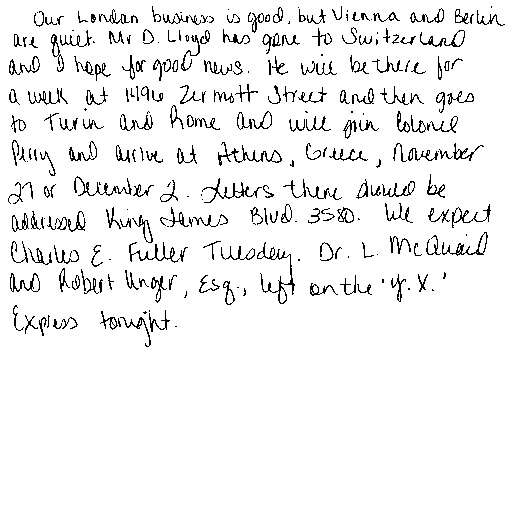 Our London business is good, but Vienna and Berlin
are quiet. Mr D. Lloyd has gone to Switzerland
and I hope for good news. He will be there for
a week at 1496 Zermott Street and then goes
to Turin and Rome and will join Colonel
Perry and arrive at Athens, Greece, November
27 or December 2. Letters there should be
addressed King James Blvd. 3580. We expect
Charles E. Fuller Tuesday. Dr. L. McQuaid
and Robert Unger, Esq., left on the 'Y.X.'
Express tonight.